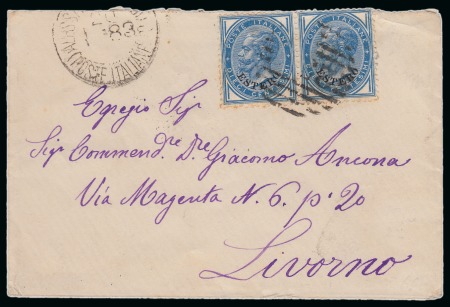 POSTE ITALIANE
ESTERO
POSTE ITALIANE
ESTERO
83
POSTE ITALIANE
Egregio Sigr
Sigr Commendre Dre Giacomo Ancona
Via Magenta N. 6. p° 2o
Livorno